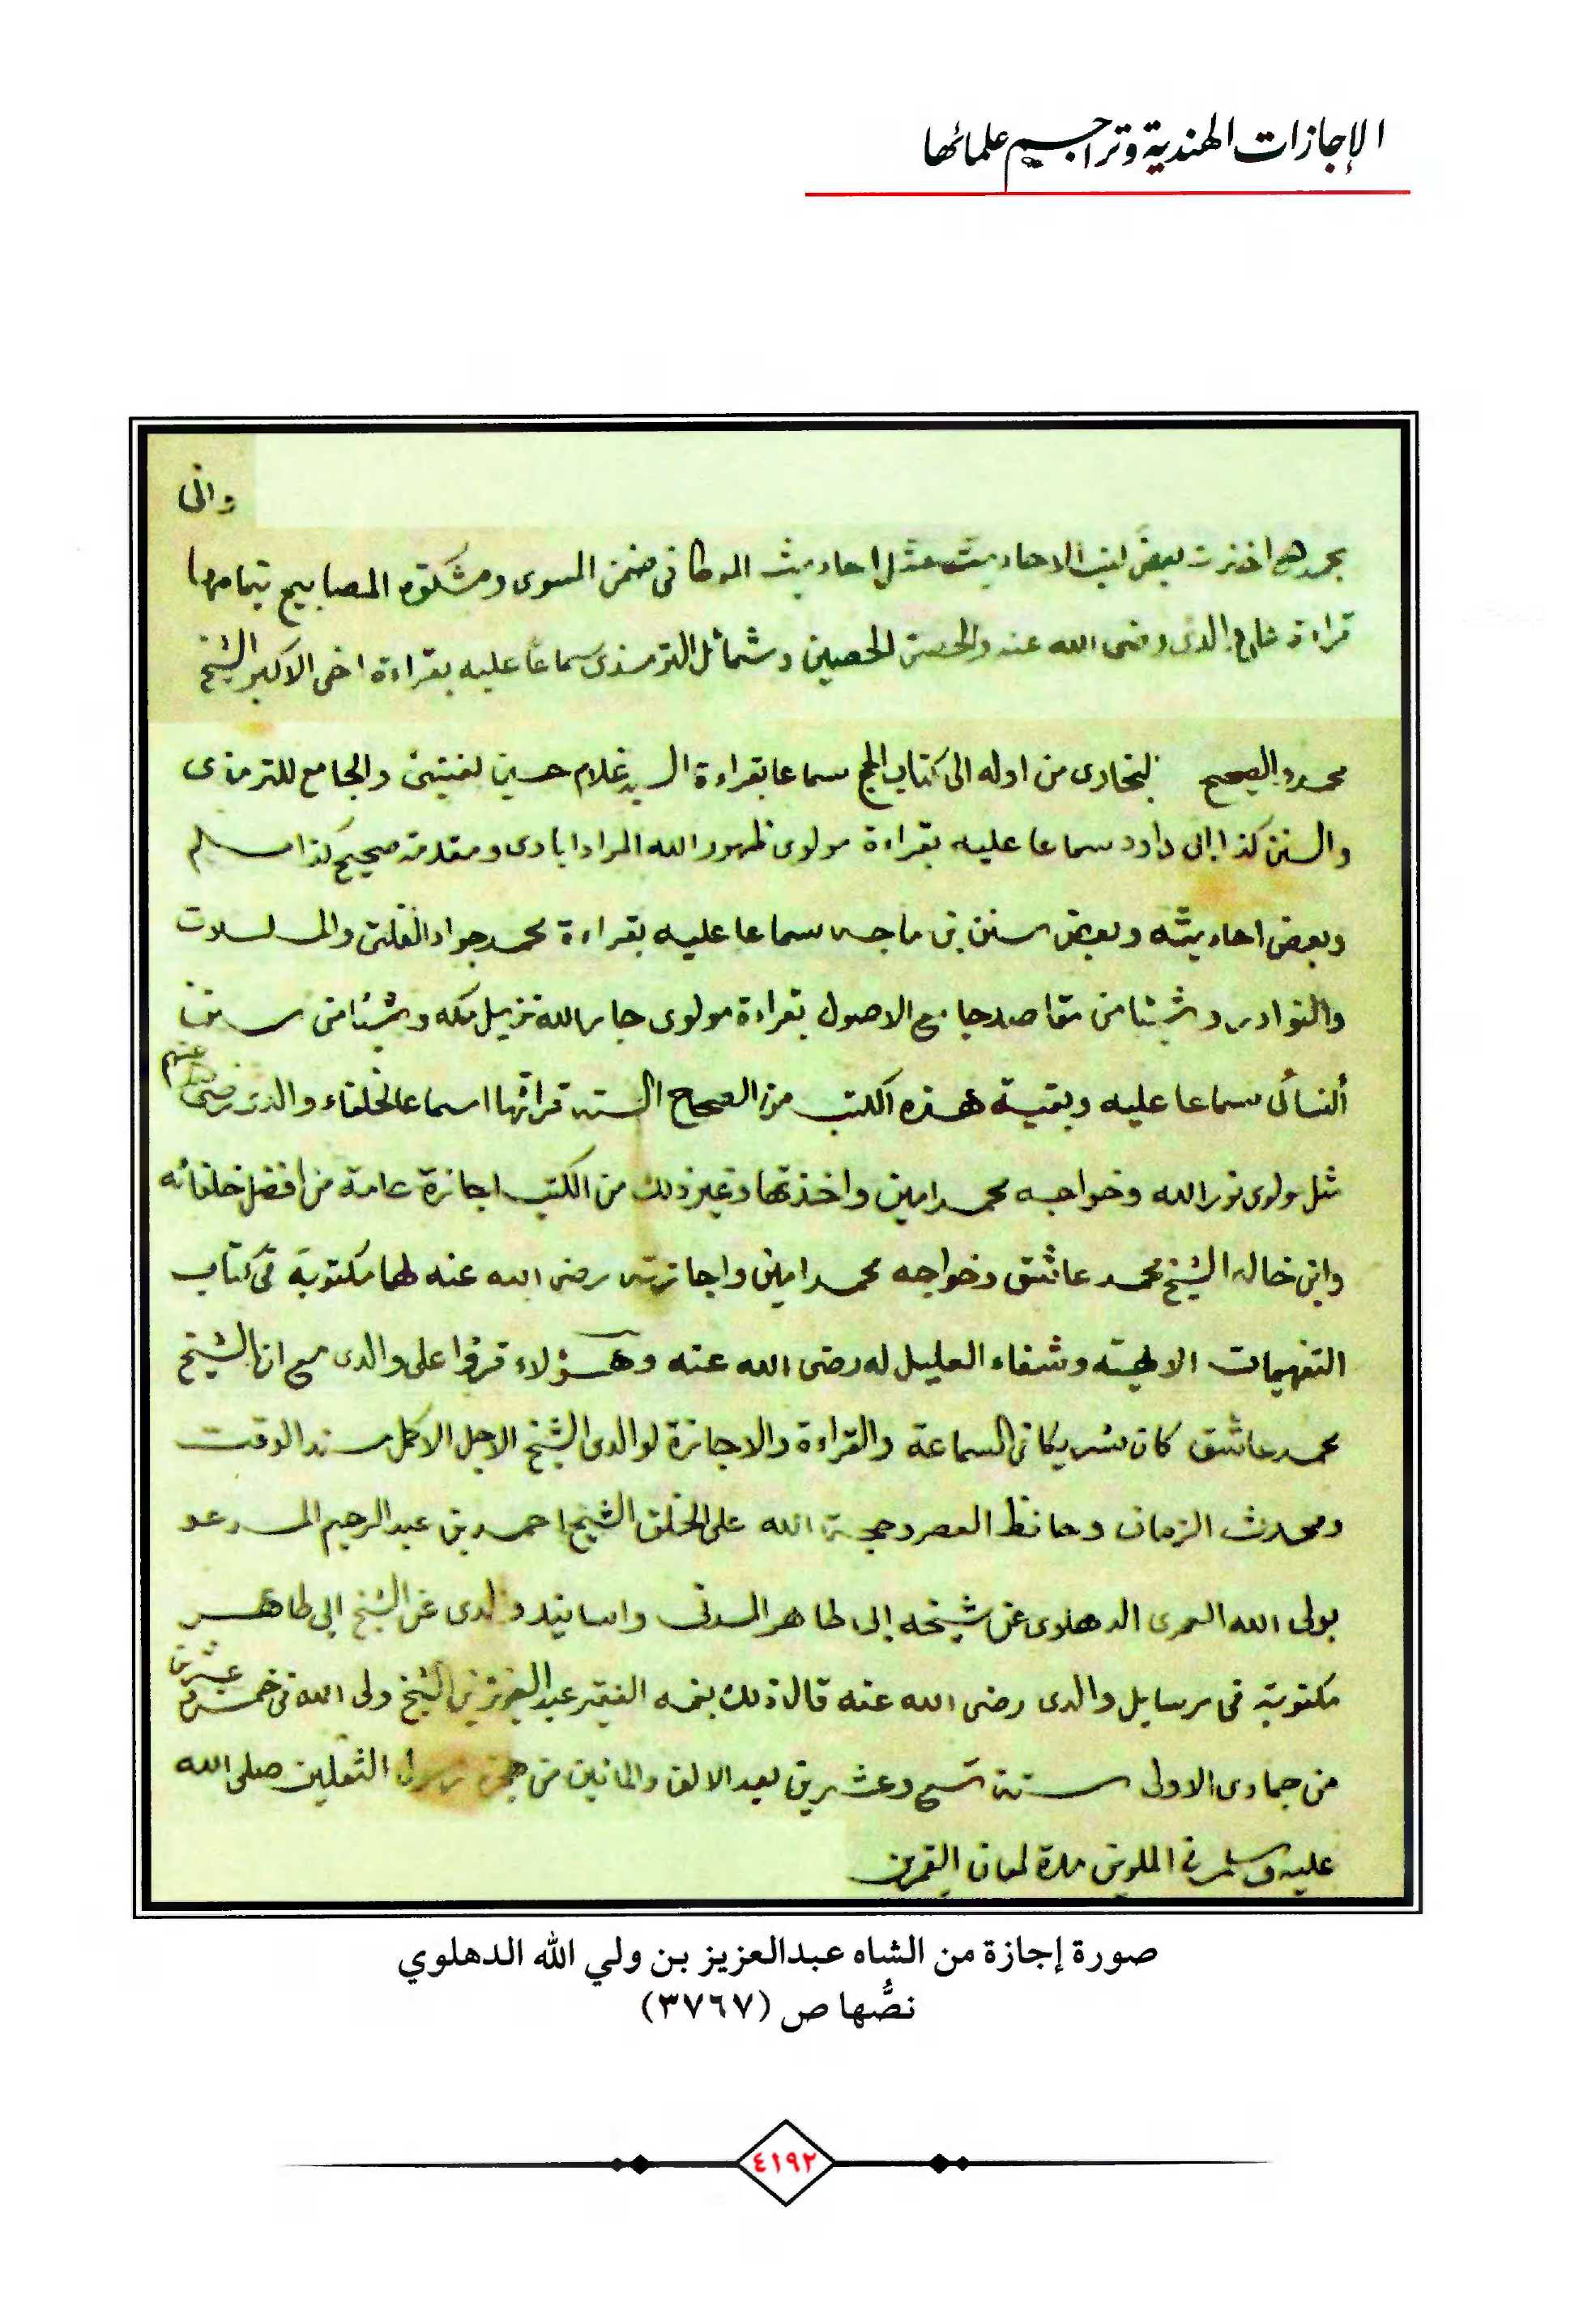 الإجازات الهندية وتراجم علمائها
واني
بحمد الله اخذت بعض كتب الاحاديث مثل احاديث الموطا في ضمن المسوى ومشكوة المصابيح بتمامها
قراءة على والدى رضى الله عنه والحصن الحصين وشمائل الترمذى سماعا عليه بقراءة اخى الاكبر الشيخ
محمد والصحيح البخارى من اوله الى كتاب الحج سماعا بقراءة السيد غلام حسين والجامع للترمذى
والسنن كذا ابى داود سماعا عليه بقراءة مولوى ظهور الله المرادابادى ومقدمة صحيح كذا مسلم
وبعض احاديثه وبعض سنن بن ماجه سماعا عليه بقراءة محمد جواد والمسلسلات
والنوادر وشيئا من مقاصد جامع الاصول بقراءة مولوى جار الله نزيل مكه وشيئا من سنن
النسائى سماعا عليه وبقية هذه الكتب من الصحاح الستة قراتها سماعا لخلفاء والدى رضى عنهم
مثل مولوى نور الله وخواجه محمد امين واخذتها وغير ذلك من الكتب اجازة عامة من افضل خلفائه
وابن خاله الشيخ محمد عاشق وخواجه محمد امين واجازته رضى الله عنه لهما مكتوبة فى كتاب
التفهيمات الالهية وشفاء العليل له رضى الله عنه وهؤلاء قرؤا على والدى مع ان الشيخ
محمد عاشق كان شريكا فى السماعة والقراءة والاجازة لوالدى الشيخ الاجل الاكمل سند الوقت
ومحدث الزمان وحافظ العصر وحجة الله على الخلق الشيخ احمد بن عبد الرحيم المدعو
بولى الله العمرى الدهلوى عن شيخه ابى طاهر المدنى واسانيد والدى عن الشيخ ابى طاهر
مكتوبة فى رسايل والدى رضى الله عنه قال ذلك بفمه الفقير عبد العزيز بن الشيخ ولى الله فى خمس و عشرين
من جمادى الاولى سنة تسع وعشرين بعد الالف والماتين من هجرة رسول الثقلين صلى الله
عليه وسلم فى الملوين مدة لمعان القمرين
صورة إجازة من الشاه عبدالعزيز بن ولي الله الدهلوي
نصُّها ص (٣٧٦٧)
٤١٩٢